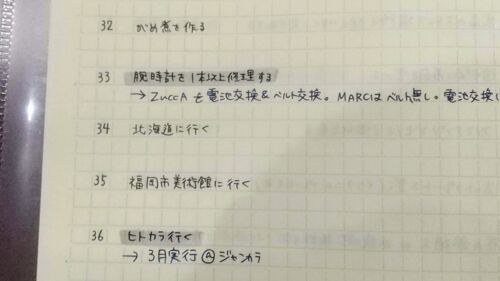 32 がめ煮を作る
33 腕時計を1本以上修理する
→ ZUCCAを電池交換&ベルト交換。MARCIはベルト無し。電池交換し
34 北海道に行く
35 福岡市美術館に行く
36 ヒトカラ行く
→ 3月実行 @ジャンカラ